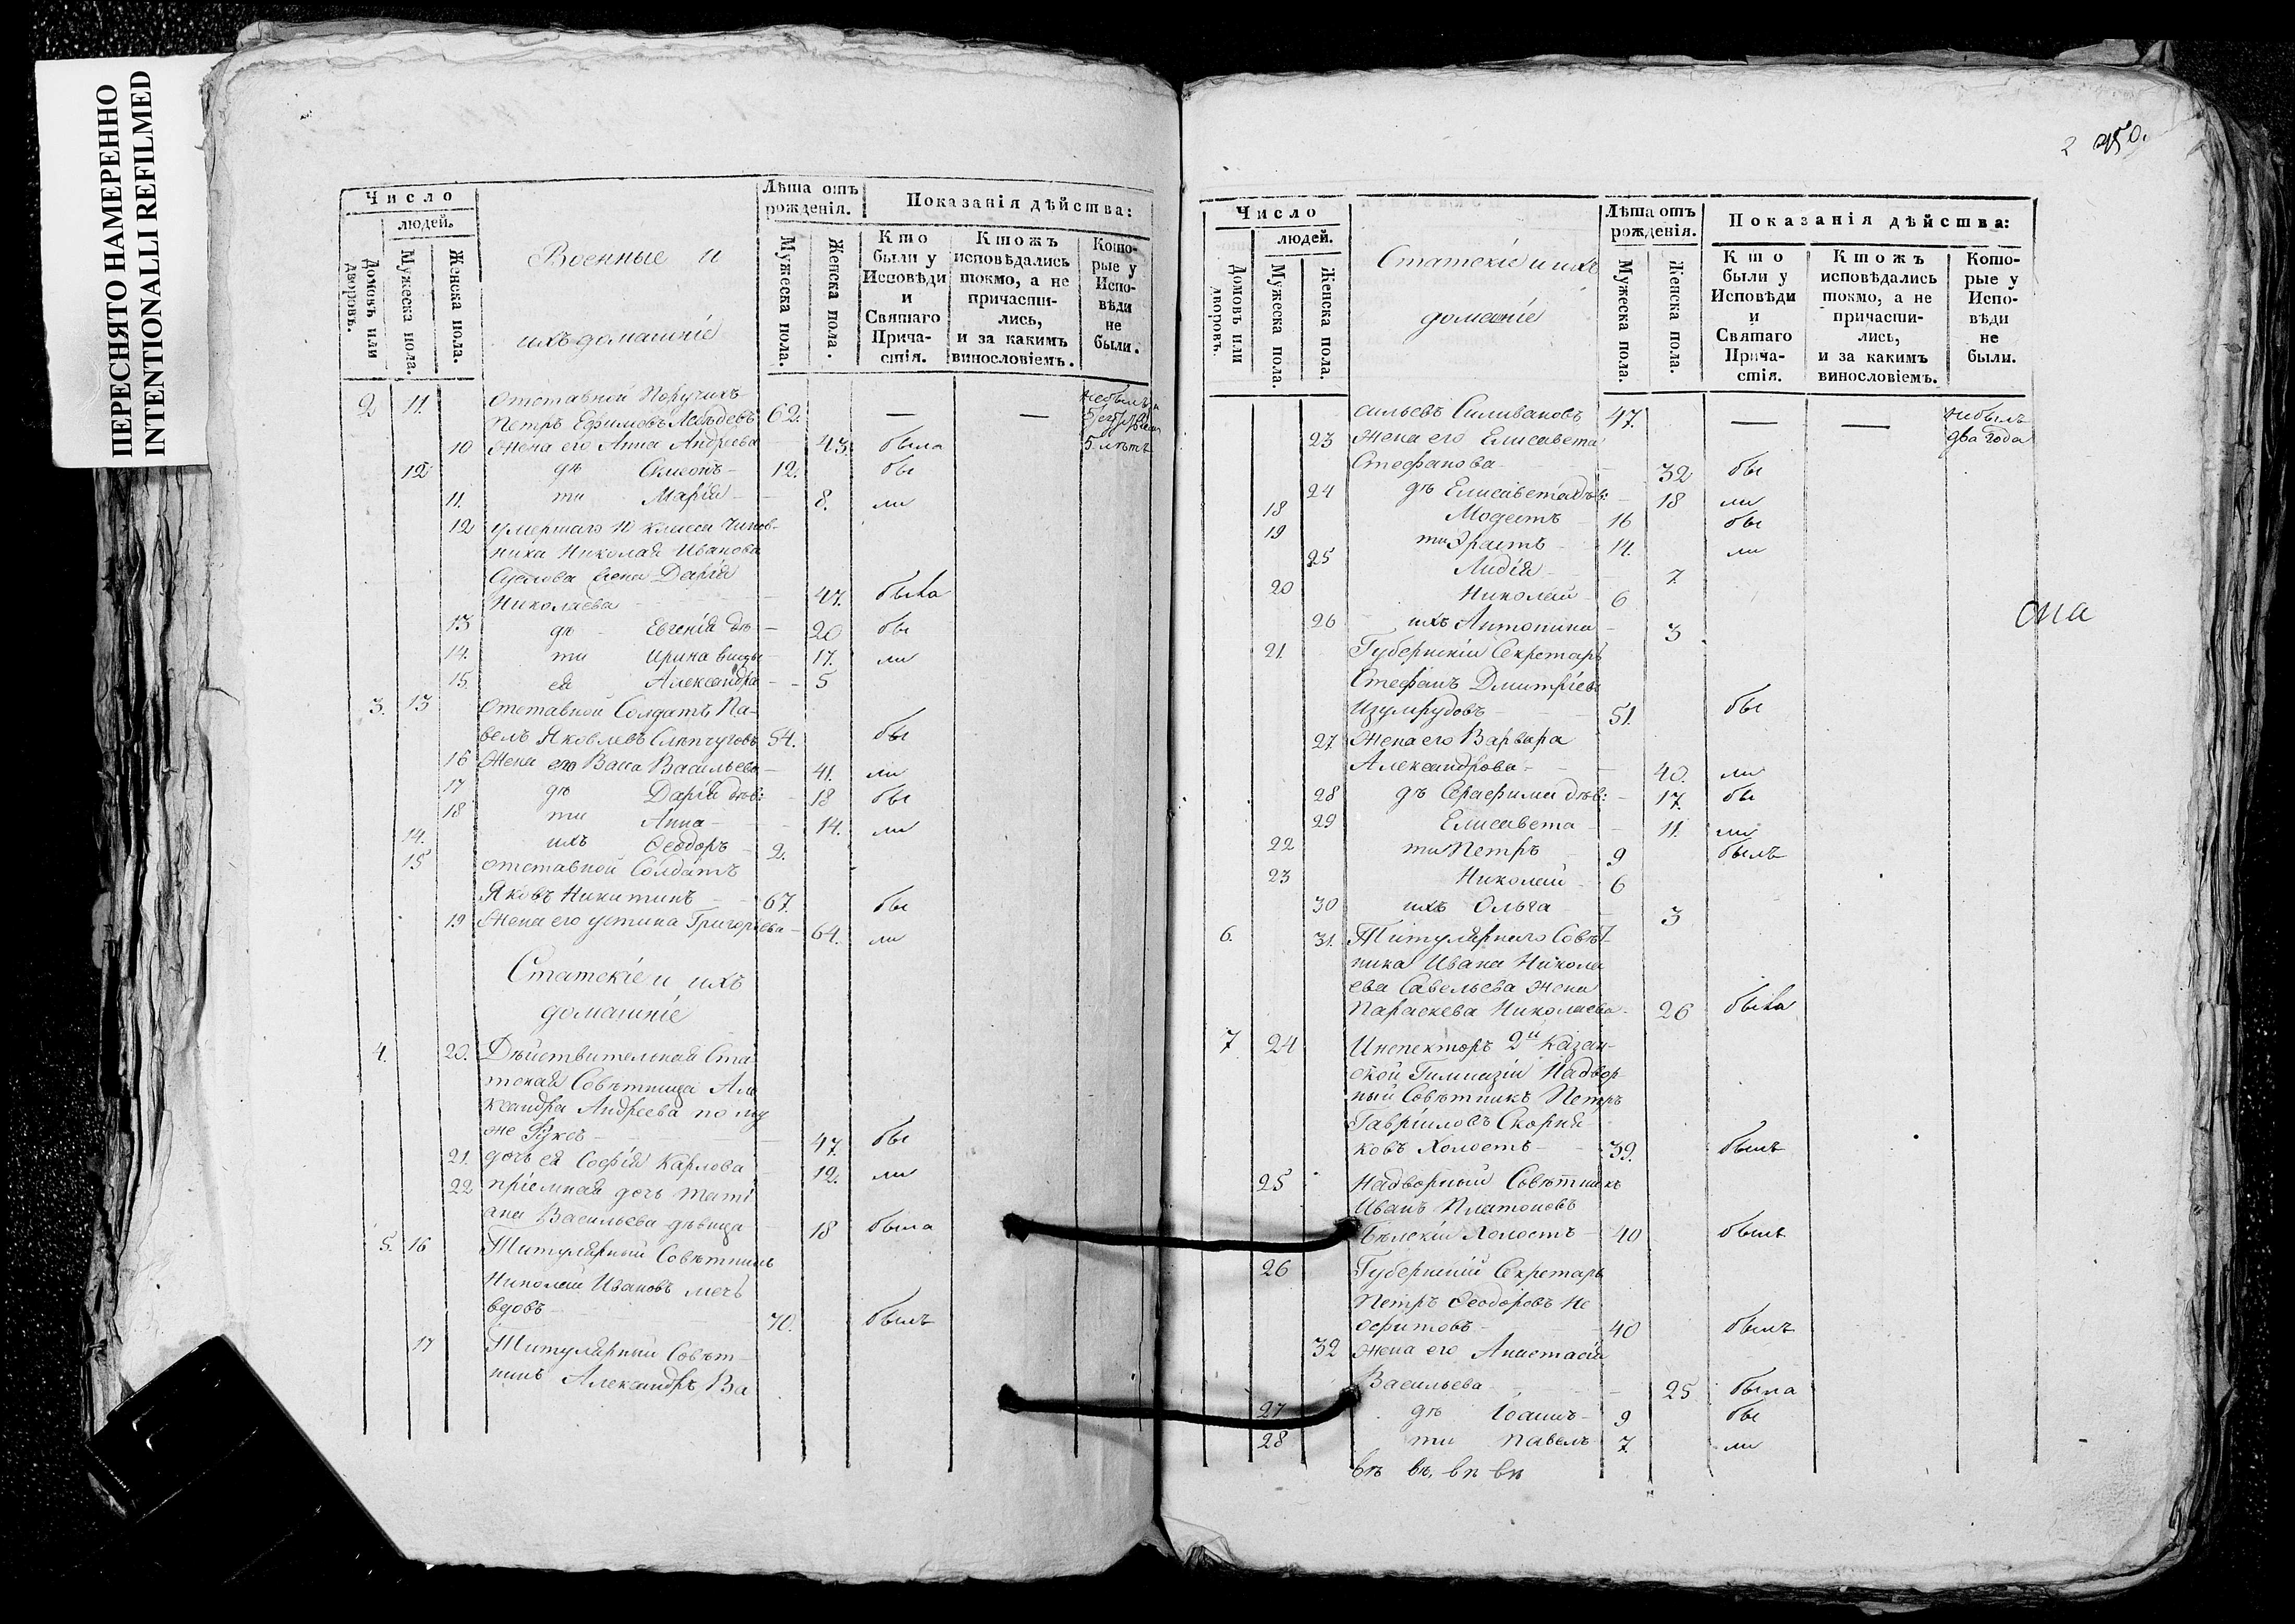 ПЕРЕСНЯТО НАМЕРЕННО
INTENTIONALLI REFILMED
Число
людей.
Домовъ или дворовъ.
Мужеска пола.
Женска пола.
Военные и
ихъ домашніе
Лѣта отъ рожденія.
Мужеска пола.
Женска пола.
Показанія дѣйства:
Кто были у Исповѣди и Святаго Прича-стія.
Ктожъ исповѣдались токмо, а не причасти-лись, и за какимъ винословіемъ.
Кото-рые у Испо-вѣди не были.
2 11. Отставной Поручикъ
Петръ Ефимовъ 62. — —
10 Жена его Анна Андреева 43. была 5 лѣтъ
12 дѣ Симеонъ 12. бы
11. ти Марія 8. ли
12 умершаго 10 класса Чинов-
ника Николая Иванова
жена Дарія
Николаева 47. была
13 дѣ Евгенія дѣ 20 бы
14. ти Ирина 17. ли
15. ея Александра 5
3. 13 Отставной Солдатъ Па-
велъ Яковлевъ 54. бы
16 Жена его Васса Васильева 41. ли
17 дѣ Дарія дѣв: 18 бы
18 ти Анна 14. ли
14. ихъ Ѳеодоръ 2.
15 отставной Солдатъ
Яковъ Никитинъ 67. бы
19 Жена его Устина Григорьева 64. ли
Статскіе и ихъ
домашніе
4. 20. Дѣйствительная Ста-
тская Совѣтница Але
ксандра Андреева по му
жѣ Фуксъ 47. бы
21. дочь ея Софія Карлова 12. ли
22 пріемная дочь Тати
ана Васильева дѣвица 18 была
5. 16 Титулярный Совѣтникъ
Николай Ивановъ
вдовъ 70. былъ
17 Титулярный Совѣт-
никъ Александръ Ва
2 250.
Число
людей.
Домовъ или дворовъ.
Мужеска пола.
Женска пола.
Статскіе и ихъ
домашніе
Лѣта отъ рожденія.
Мужеска пола.
Женска пола.
Показанія дѣйства:
Кто были у Исповѣди и Святаго Прича-стія.
Ктожъ исповѣдались токмо, а не причасти-лись, и за какимъ винословіемъ.
Кото-рые у Испо-вѣди не были.
сильевъ Селивановъ 47. — — небылъ
23 Жена его Елисавета два года
Стефанова 32 бы
24 дѣ Елисавета дѣв: 18 ли
18 Модестъ 16 бы
19 ти Эрастъ 14. ли
25 Лидія 7.
20 Николай 6
26 ихъ Антонина 3
21. Губернскій Секретарь
Стефанъ Дмитріевъ
Изумрудовъ 51. бы
27. Жена его Варвара
Александрова 40. ли
28 дѣ Серафима дѣв: 17. бы
29 Елисавета 11. ли
22 ти Петръ 9 былъ
23 Николай 6
30 ихъ Ольга 3
6. 31. Титулярнаго Совѣт-
ника Ивана Никола
ева Савельева Жена
Параскева Николаева 26 была
7 24 Инспекторъ 2й Казан-
ской Гимназіи Надвор-
ный Совѣтникъ Петръ
Гавриловъ Скорня
ковъ Холостъ 39. былъ
25 Надворный Совѣтникъ
Иванъ Платоновъ
Бѣлскій Холостъ 40 былъ
26 Губернскій Секретарь
Петръ Ѳеодоровъ Не
офитовъ 40 былъ
32 Жена его Анастасія
Васильева 25 была
27 дѣ Іоаннъ 9 бы
28 ти Павелъ 7. ли